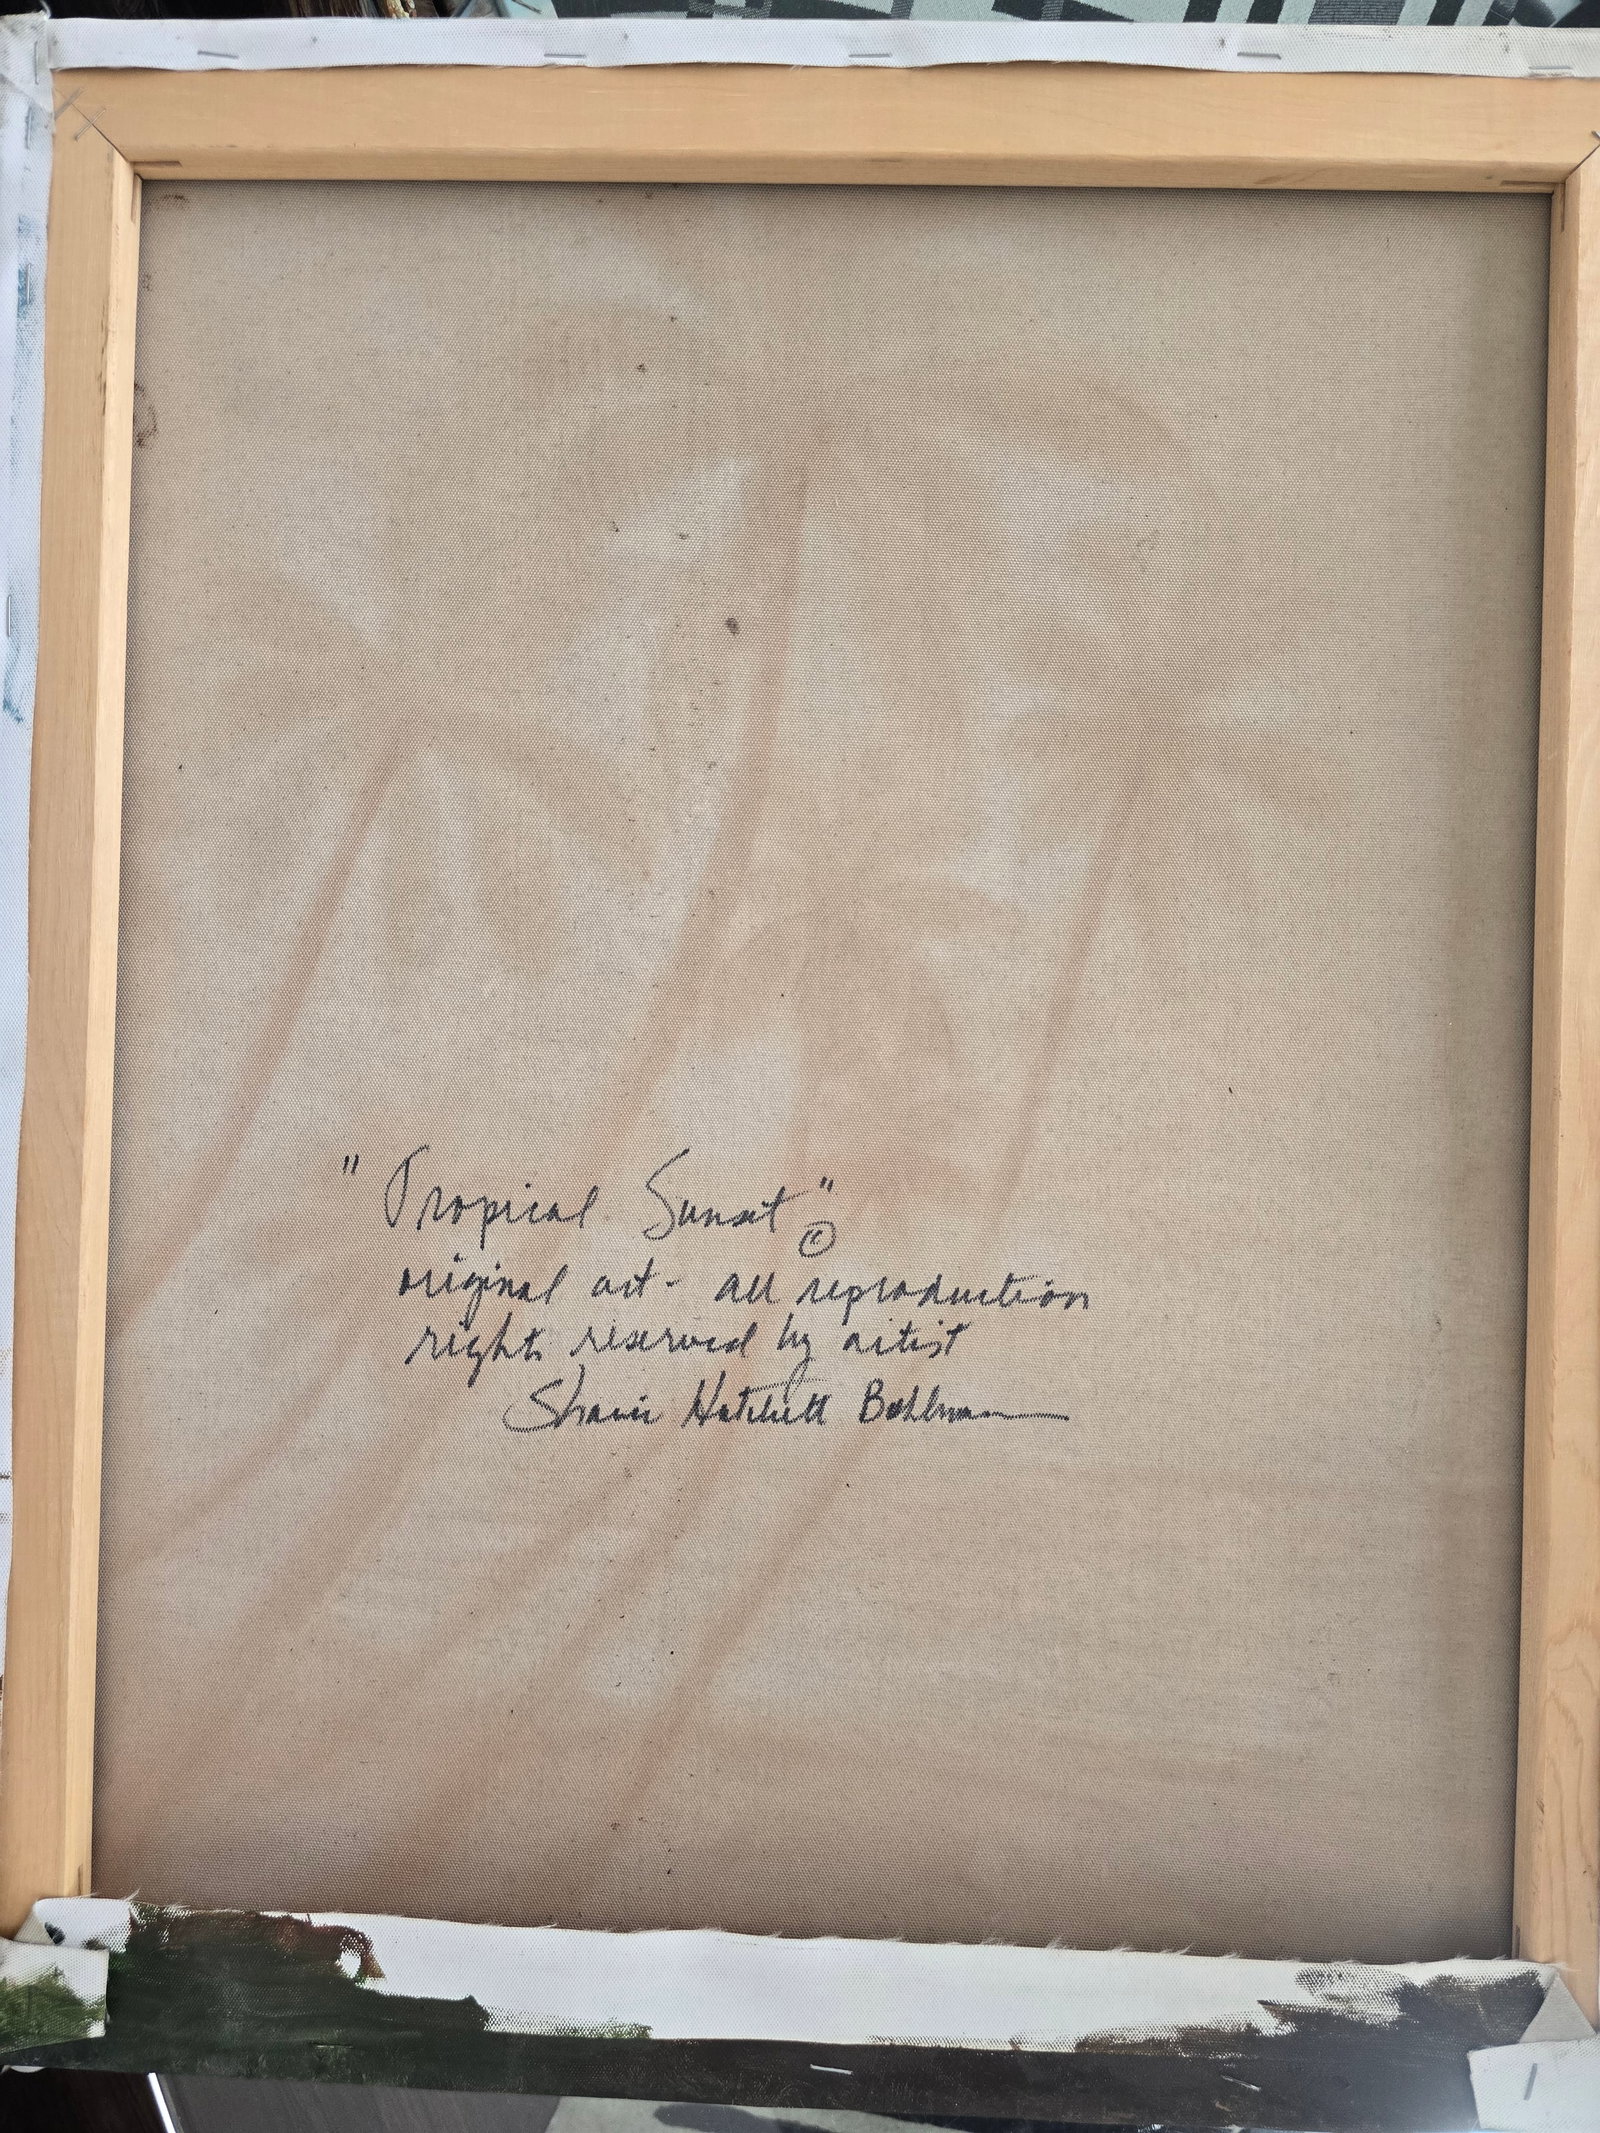 "Tropical Sunset" ©
original art - all reproduction
rights reserved by artist
Sharie Hatchett Bohlmann